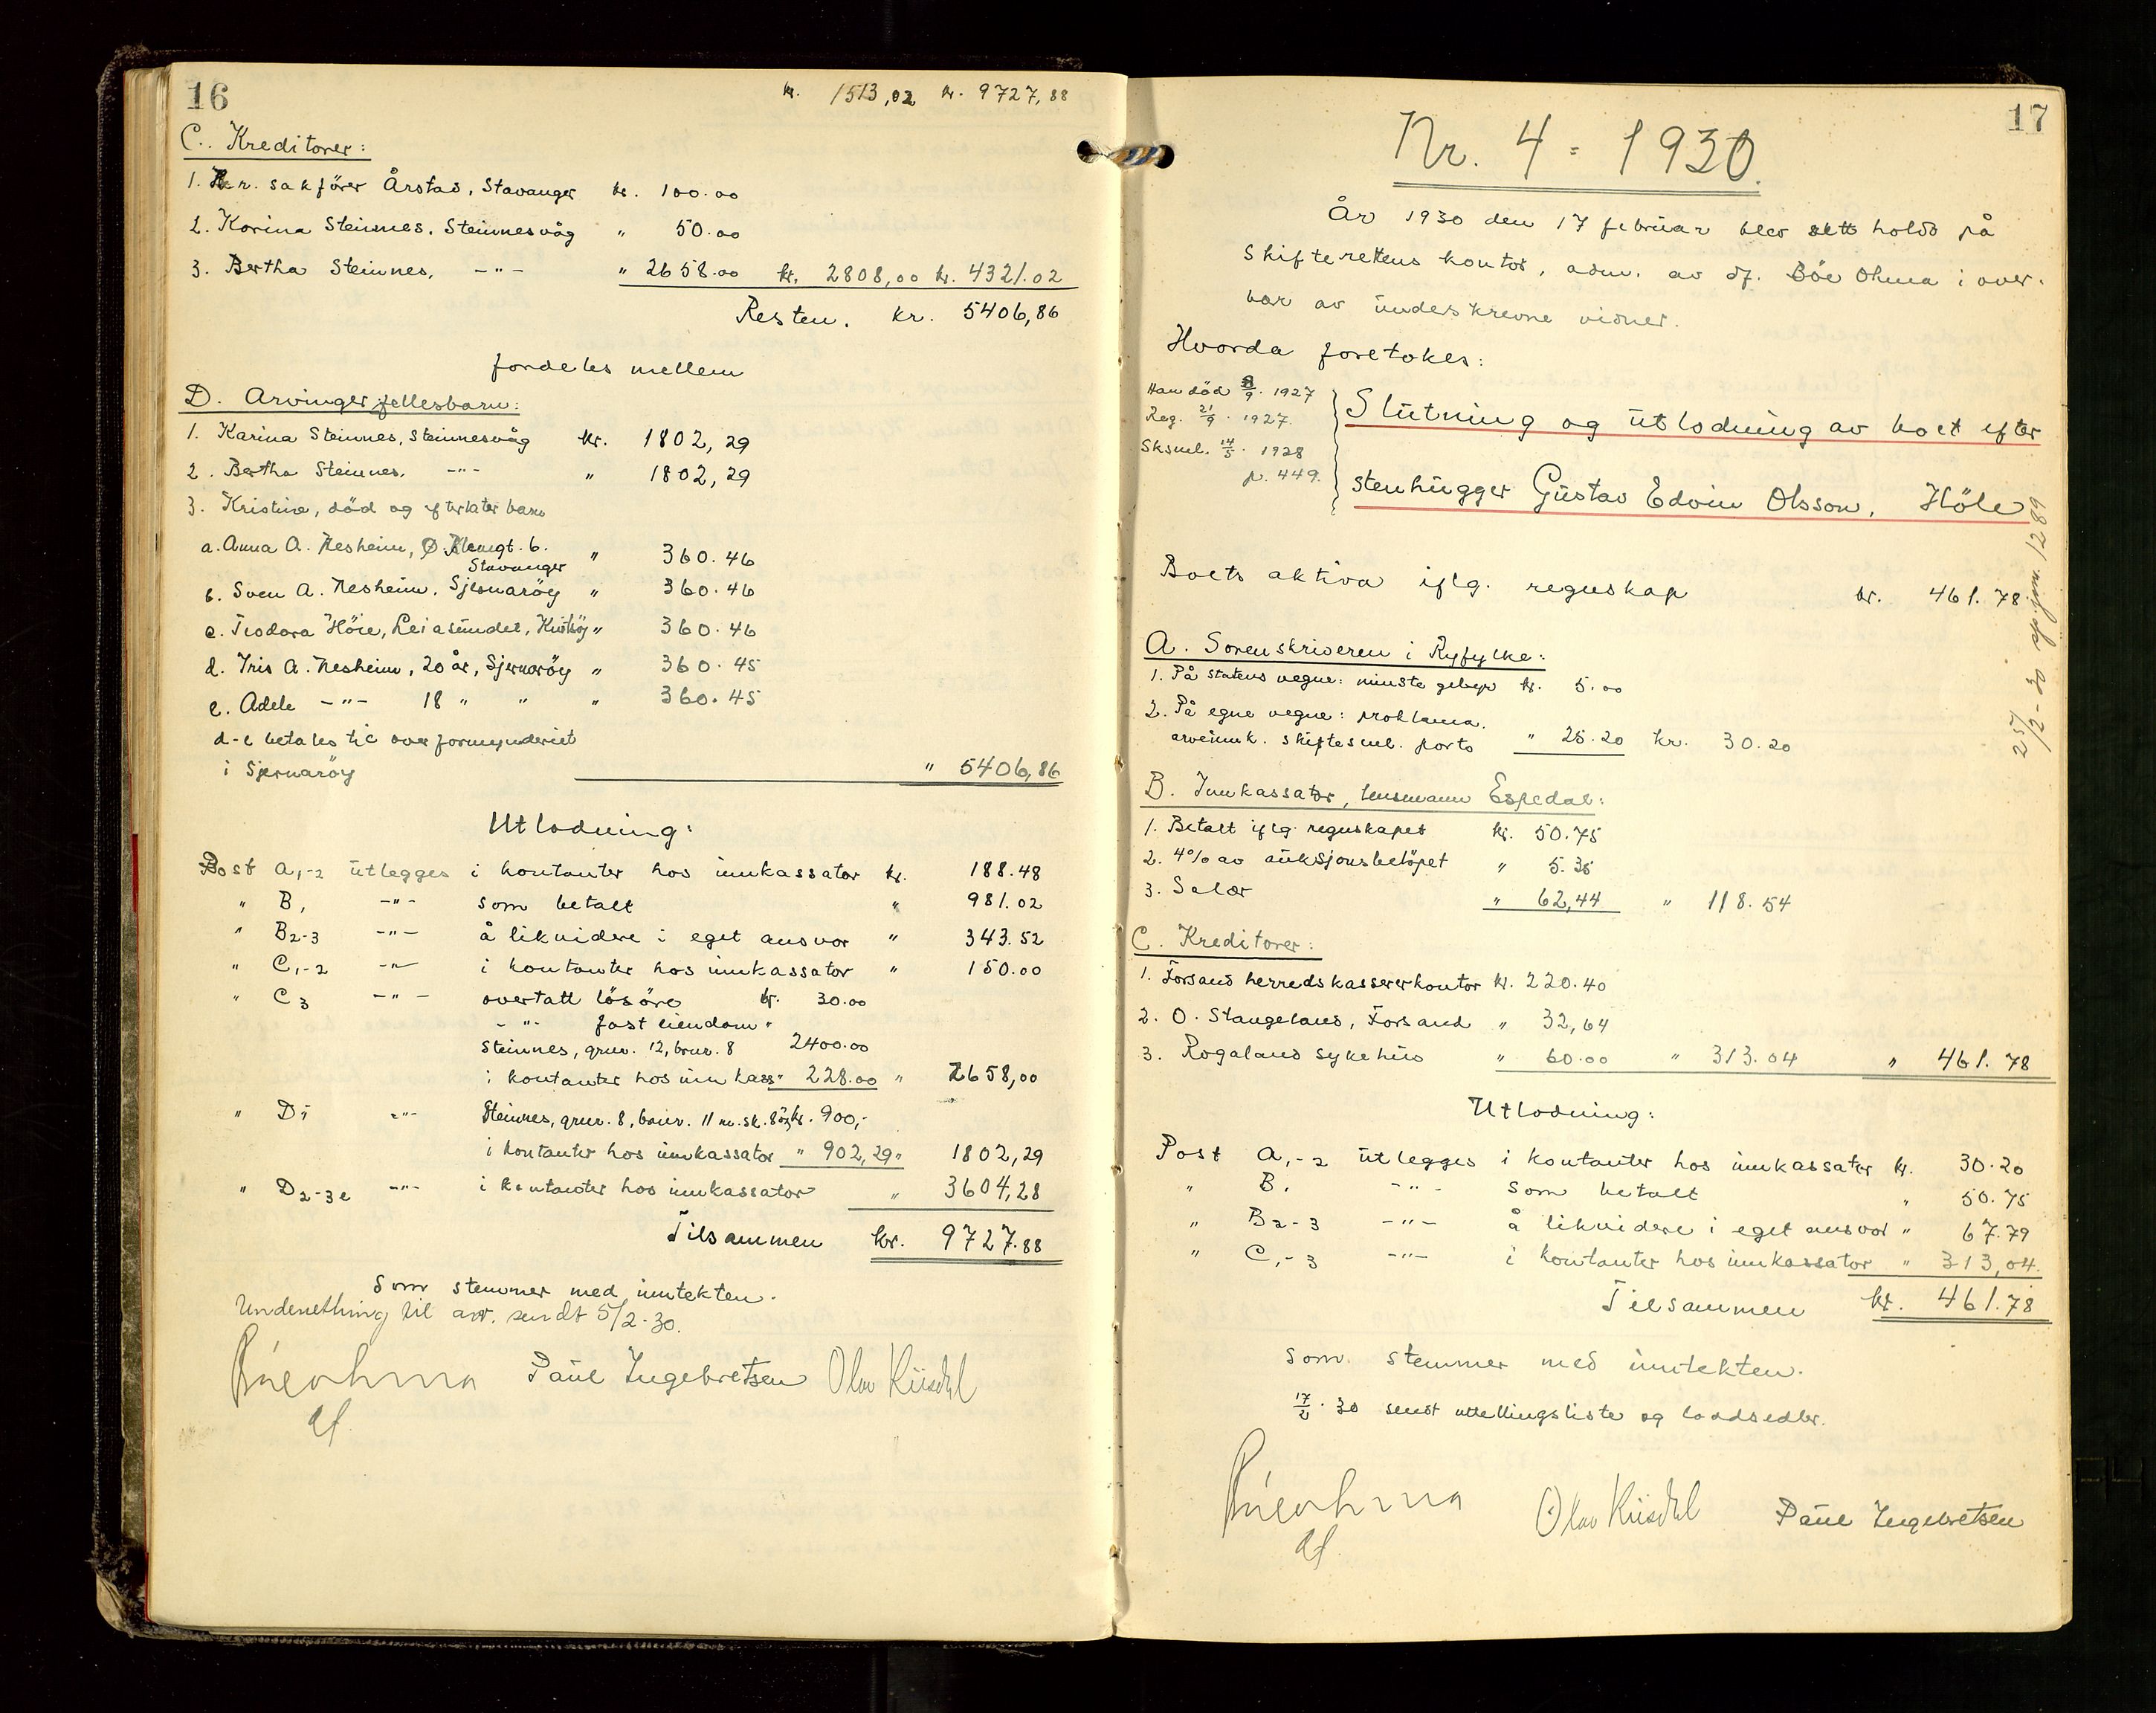 16
kr. 1513,02 kr. 9727,88
C. Kreditorer:
1. H.r. sakförer Årstad, Stavanger kr. 100.00
2. Karina Steinnes, Steinnesvåg " 50.00
3. Bertha Steinnes, -"- " 2658.00 kr. 2808,00 kr. 4321.02
Resten, kr. 5406,86
fordeles mellem
D. Arvinger fellesbarn:
1. Karina Steinnes, Steinnesvåg kr. 1802,29
2. Bertha Steinnes, -"- " 1802,29
3. Kristine, död og efterlater barn
a. Anna A. Nesheim, Ø. 6.
Stavanger " 360.46
b. Sven A. Nesheim, Sjernaröy " 360.46
c. Teodora Höie, Leiasundet, " 360.46
d. Iris A. Nesheim, 20 år, Sjernaröy " 360.45
e. Adele -"- 18 " " " 360.45
d-e betales til overformynderiet
i Sjernaröy " 5406,86
Utlodning:
Post A,-2 utlegges i kontanter hos innkassator kr. 188.48
" B, -"- som betalt " 981.02
" B2-3 -"- å likvidere i eget ansvar " 343.52
" C,-2 -"- i kontanter hos innkassator " 150.00
" C3 -"- overtatt lösöre kr. 30.00
-"- fast eiendom "
Steinnes, grnr. 12, brnr. 8 2400.00
i kontanter hos innkass. " 228.00 " 2658,00
" D1 -"- Steinnes, grnr. 8, brnr. 11 m. sk. kr. 900,-
i kontanter hos innkassator " 902,29 " 1802,29
" D2-3e -"- i kontanter hos innkassator " 3604,28
Tilsammen kr. 9727.88
Som stemmer med inntekten.
Underretning til arv. sendt 5/2-30.
Bøe Ohma Paul Ingebretsen Olav
df.
17
Nr. 4 - 1930.
År 1930 den 17 februar blev rett holdt på
Skifterettens kontor, adm. av df. Böe Ohma i over-
vær av underskrevne vidner.
Hvorda foretokes:
Han död 8/9. 1927
Reg. 21/9. 1927.
Sksml. 14/5. 1928
p. 449.
Slutning og utlodning av boet efter
stenhugger Gustav Edvin Olsson, Höle
25/2-30 1289
Boets aktiva iflg. regnskap kr. 461.78
A. Sorenskriveren i Ryfylke:
1. På statens vegne: minste gebyr kr. 5.00
2. På egne vegne: proklama.
arveinnk. skiftesml. porto " 25.20 kr. 30.20
B. Innkassator, lensmann Espedal:
1. Betalt iflg. regnskapet kr. 50.75
2. 4% av auksjonsbelöpet " 5.35
3. Salær " 62,44 " 118.54
C. Kreditorer:
1. Forsand herredskassererkontor kr. 220.40
2. O. Stangeland, Forsand " 32,64
3. Rogaland sykehus " 60.00 " 313.04 " 461.78
Utlodning:
Post A,-2 utlegges i kontanter hos innkassator kr. 30.20
" B, -"- som betalt " 50.75
" B2-3 -"- å likvidere i eget ansvar " 67.79
" C,-3 -"- i kontanter hos innkassator " 313,04.
Tilsammen kr. 461.78
som stemmer med inntekten.
17/2. 30 sendt utdelingsliste og loddsedler.
Bøe Ohma Olav Paul Ingebretsen
df.